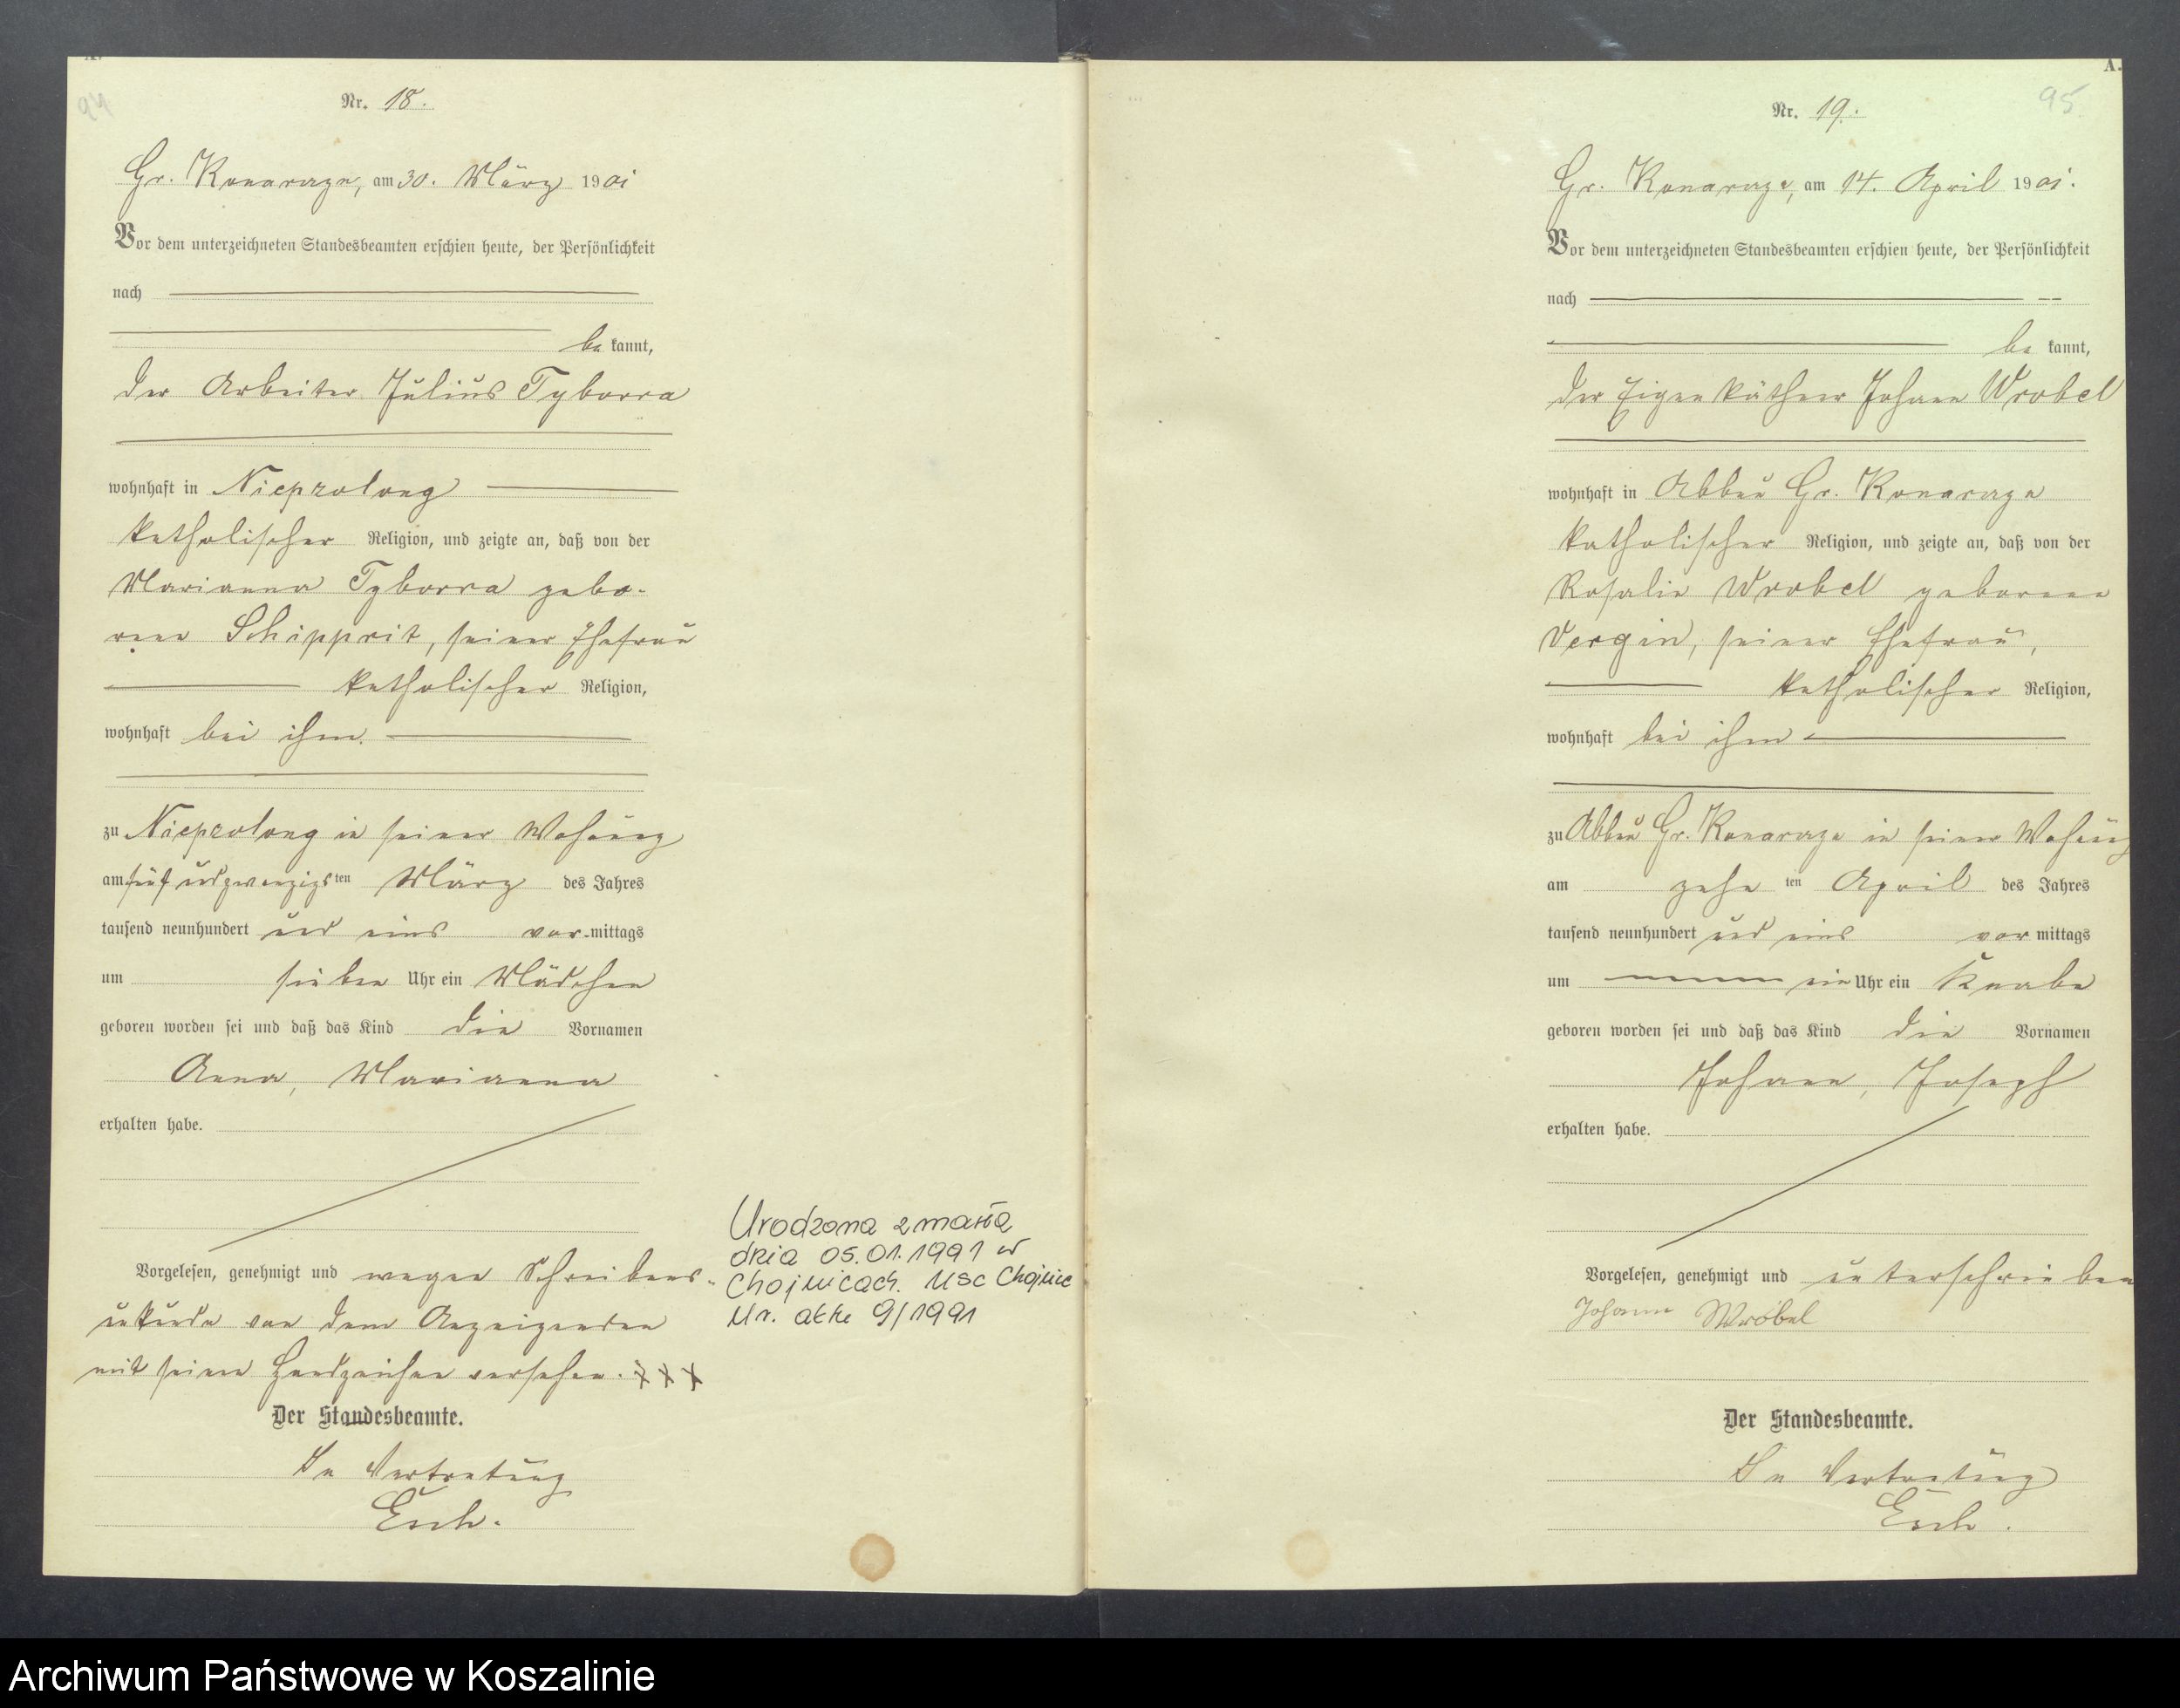 94
Nr. 18.
Gr. Konarczyn, am 30. März 1901
Vor dem unterzeichneten Standesbeamten erschien heute, der Persönlichkeit
nach
be kannt,
der Arbeiter Julius Tyborra
wohnhaft in Nieprzolong
katholischer Religion, und zeigte an, daß von der
Marianna Tyborra gebo-
rene Schipprit, seiner Ehefrau
katholischer Religion,
wohnhaft bei ihm.
zu Nieprzolong in seiner Wohnung
am fünf und zwanzigs ten März des Jahres
tausend neunhundert und eins vor mittags
um sieben Uhr ein Mädchen
geboren worden sei und daß das Kind die Vornamen
Anna, Marianna
erhalten habe.
Vorgelesen, genehmigt und wegen Schreibens-
unkunde von dem Anzeigenden
mit seinen Handzeichen versehen. xxx
Der Standesbeamte.
In Vertretung
Esch.
Urodzona zmarła
dnia 05.01.1991 w
Chojnicach. USC Chojnice
Nr. aktu 9/1991
A.
95
Nr. 19.
Gr. Konarczyn, am 14. April 1901.
Vor dem unterzeichneten Standesbeamten erschien heute, der Persönlichkeit
nach
be kannt,
der Eigenkäthner Johann Wrobel
wohnhaft in Abbau Gr. Konarczyn
katholischer Religion, und zeigte an, daß von der
Rosalie Wrobel geborene
Vergin, seiner Ehefrau,
katholischer Religion,
wohnhaft bei ihm
zu Abbau Gr. Konarczyn in seiner Wohnung
am zehn ten April des Jahres
tausend neunhundert und eins vor mittags
um ein Uhr ein Knabe
geboren worden sei und daß das Kind die Vornamen
Johann, Joseph
erhalten habe.
Vorgelesen, genehmigt und unterschrieben
Johann Wrobel
Der Standesbeamte.
In Vertretung
Esch.
Archiwum Państwowe w Koszalinie